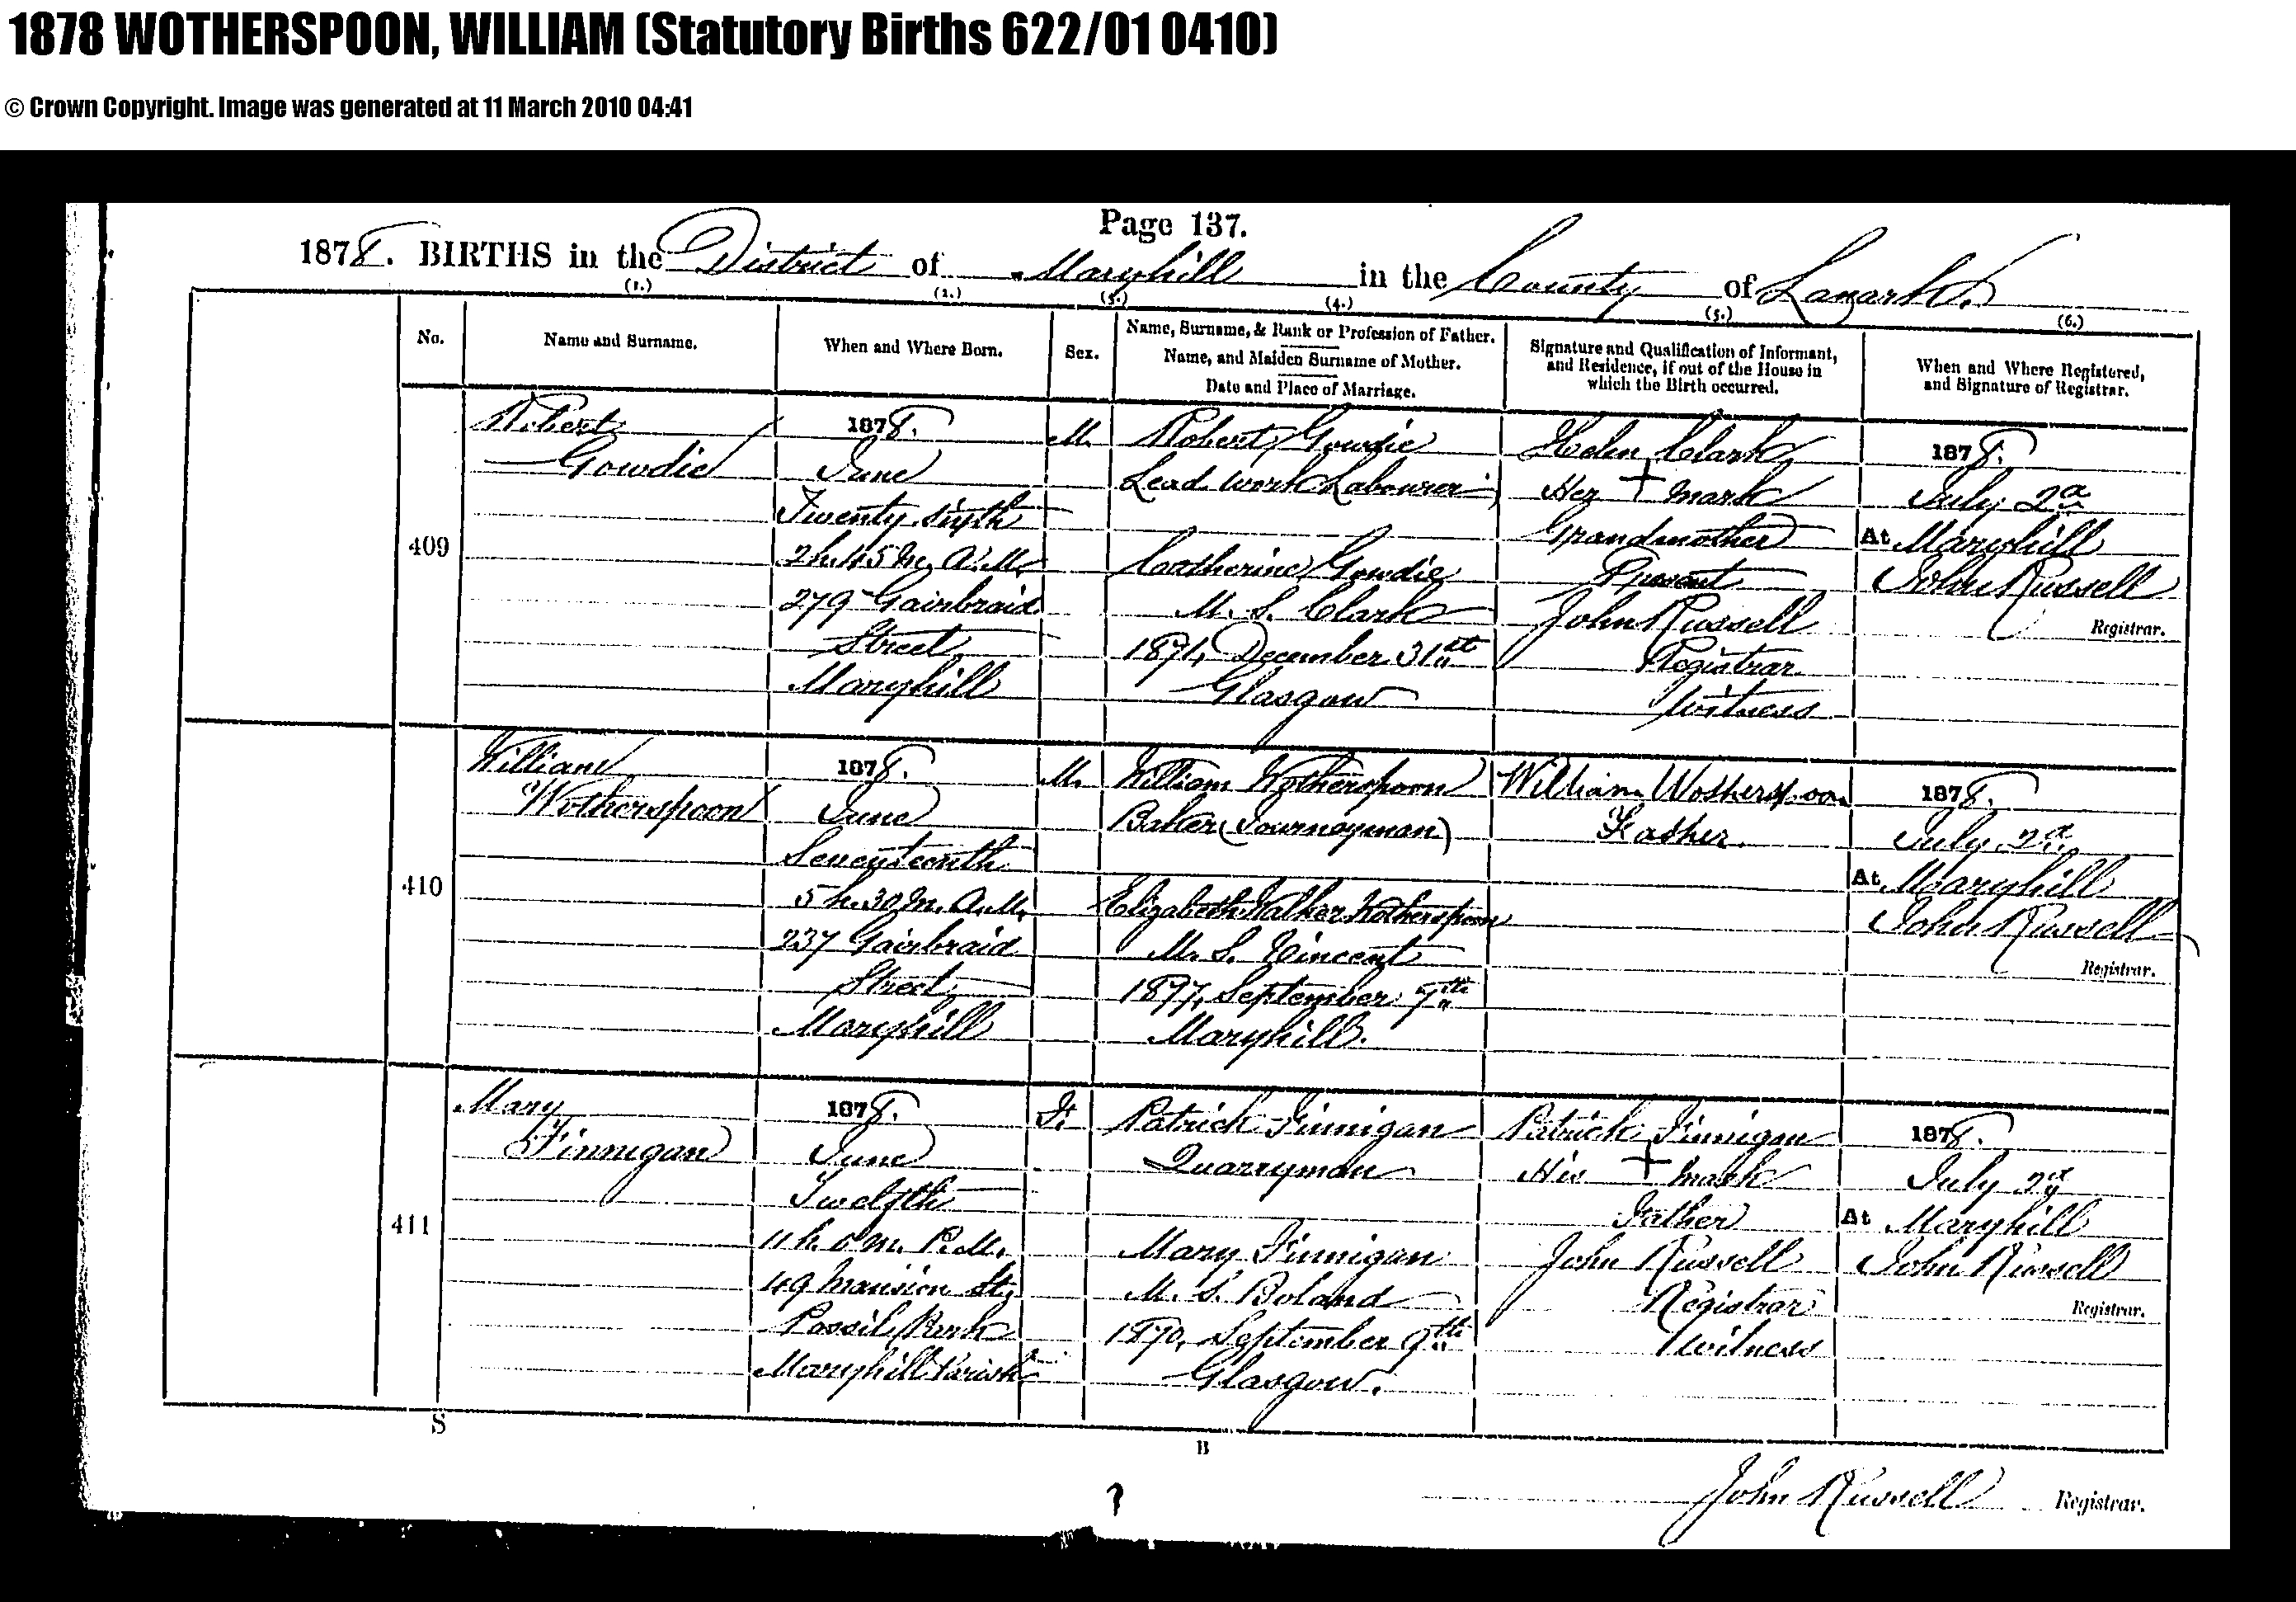 1878 WOTHERSPOON, WILLIAM (Statutory Births 622/01 0410)
© Crown Copyright. Image was generated at 11 March 2010 04:41
Page 137.
1878. BIRTHS in the District of Maryhill in the County of Lanark.
(1.) (2.) (3.) (4.) (5.) (6.)
No.
Name and Surname.
When and Where Born.
Sex.
Name, Surname, & Rank or Profession of Father.
Name, and Maiden Surname of Mother.
Date and Place of Marriage.
Signature and Qualification of Informant,
and Residence, if out of the House in
which the Birth occurred.
When and Where Registered,
and Signature of Registrar.
409
Robert
Gowdie
1878.
June
Twenty sixth
2h. 45m. A.M.
279 Gairbraid
Street
Maryhill
M.
Robert Gowdie
Lead Work Labourer
Catherine Gowdie
M. S. Clark
1874, December 31st
Glasgow
Helen Clark
Her + mark
Grandmother
Present
John Russell
Registrar
Witness
1878.
July 2d
At Maryhill
John Russell
Registrar.
410
William
Wotherspoon
1878.
June
Seventeenth
5h. 30m. A.M.
237 Gairbraid
Street
Maryhill
M.
William Wotherspoon
Baker (Journeyman)
Elizabeth Walker Wotherspoon
M. S. Vincent
1877, September 7th
Maryhill.
William Wotherspoon
Father.
1878.
July 2d
At Maryhill
John Russell
Registrar.
411
Mary
Finnigan
1878.
June
Twelfth
11h. 0m. P.M.
49 Mansion St.
Possil Park
Maryhill Parish
F.
Patrick Finnigan
Quarryman
Mary Finnigan
M. S. Boland
1870, September 9th
Glasgow.
Patrick Finnigan
His + mark
Father
John Russell
Registrar
Witness
1878.
July 2d
At Maryhill
John Russell
Registrar.
S
B
John Russell Registrar.